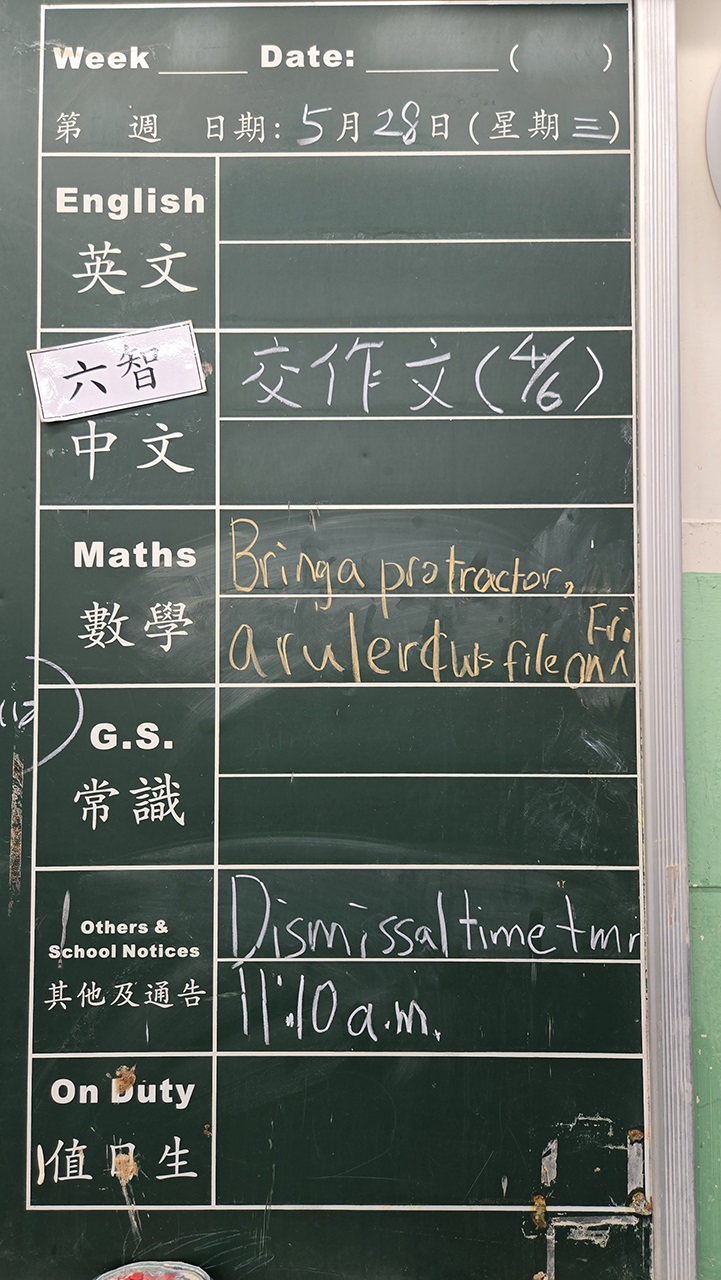 Week ____ Date: ______ ( )
第 週 日期: 5月28日(星期三)
English
英文
六智
交作文(4/6)
中文
Maths
Bring a protractor,
數學
a ruler & ws file on ^ Fri.
G.S.
常識
Others &
School Notices
Dismissal time tmr
其他及通告
11:10 a.m.
On Duty
值日生